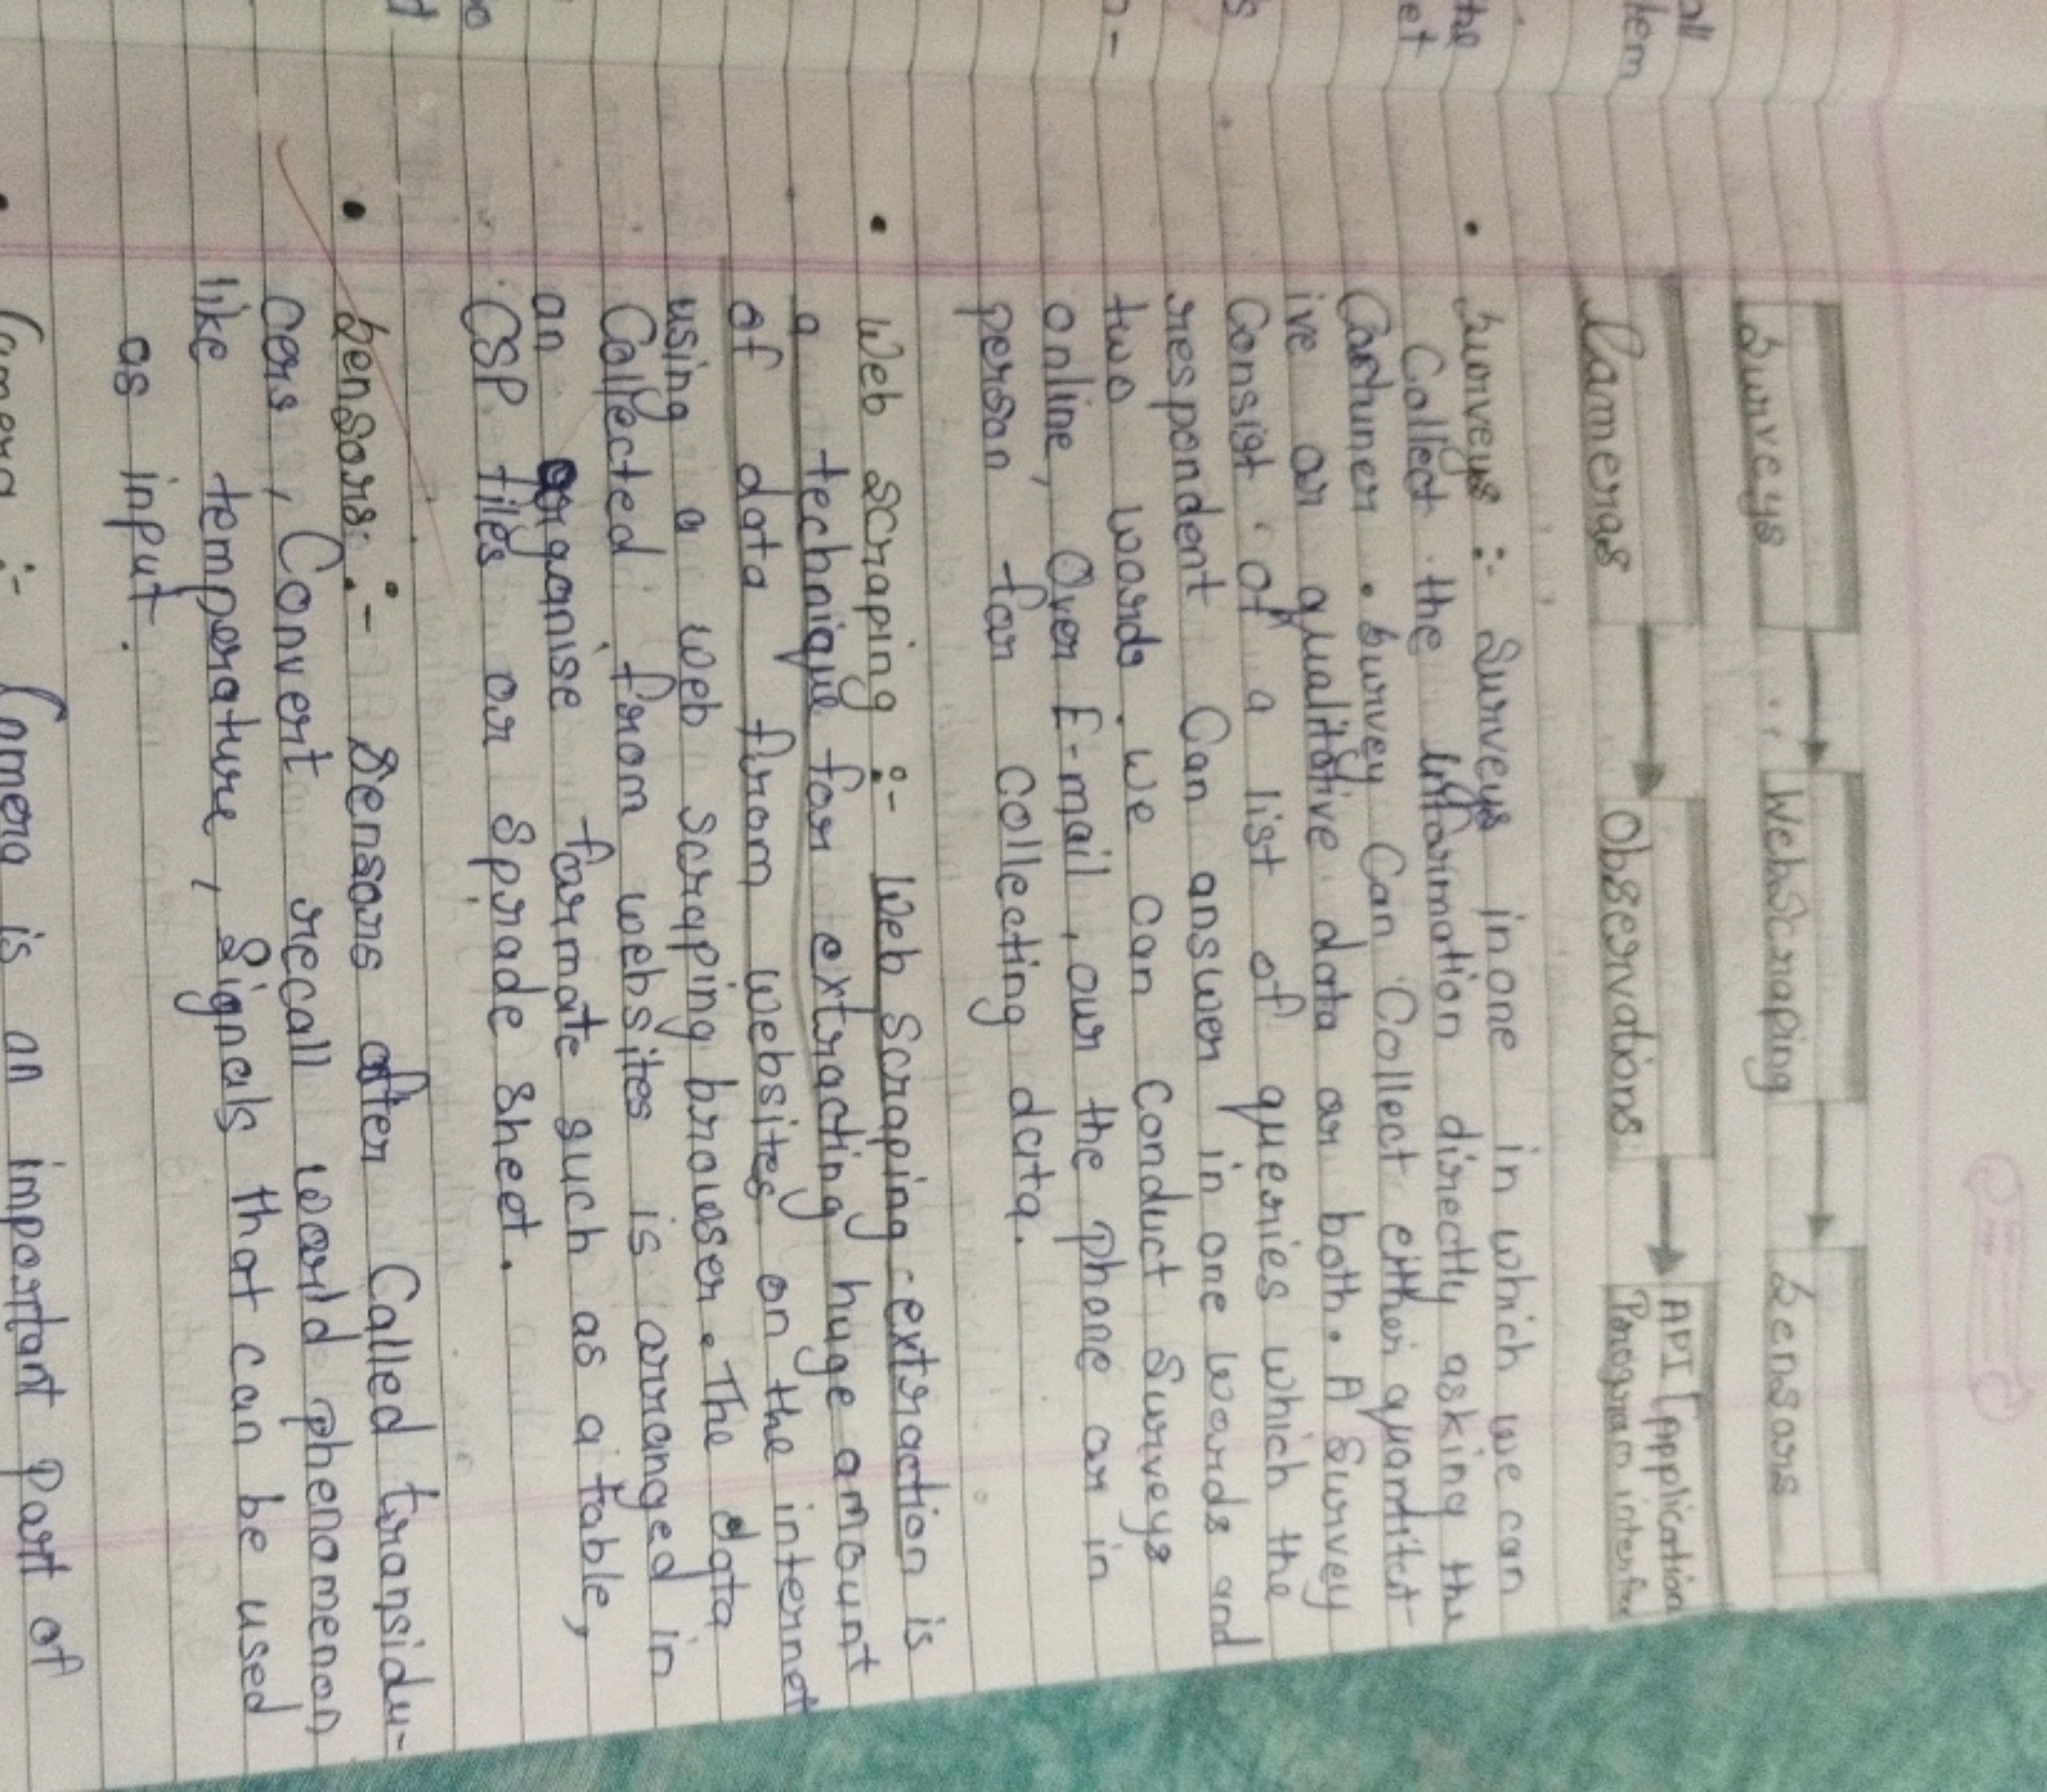 Surveys → WebScraping → Sensors
Cameras → Observations → API [Application
Program interface
• Surveys :- Surveys in one in which we can
Collect the information directly asking the
Costumer . Survey Can Collect either quantitat-
ive or qualitative data or both. A Survey
Consist of a list of queries which the
respondent Can answer in one words and
two words. we can Conduct Surveys
online, Over E-mail, our the phone or in
person for collecting data.
• Web Scraping :- Web Scraping-extraction is
a technique for extracting huge amount
of data from websites on the internet
using a web scraping browser. The data
Collected from websites is arranged in
an organise formate such as a table,
CSP files or Sprade sheet.
• Sensors :- Sensors often Called transidu-
cers, Convert recall world phenomenon
like temperature, Signals that can be used
as input.
• Camera :- Camera is an important part of
all
lem
the
et